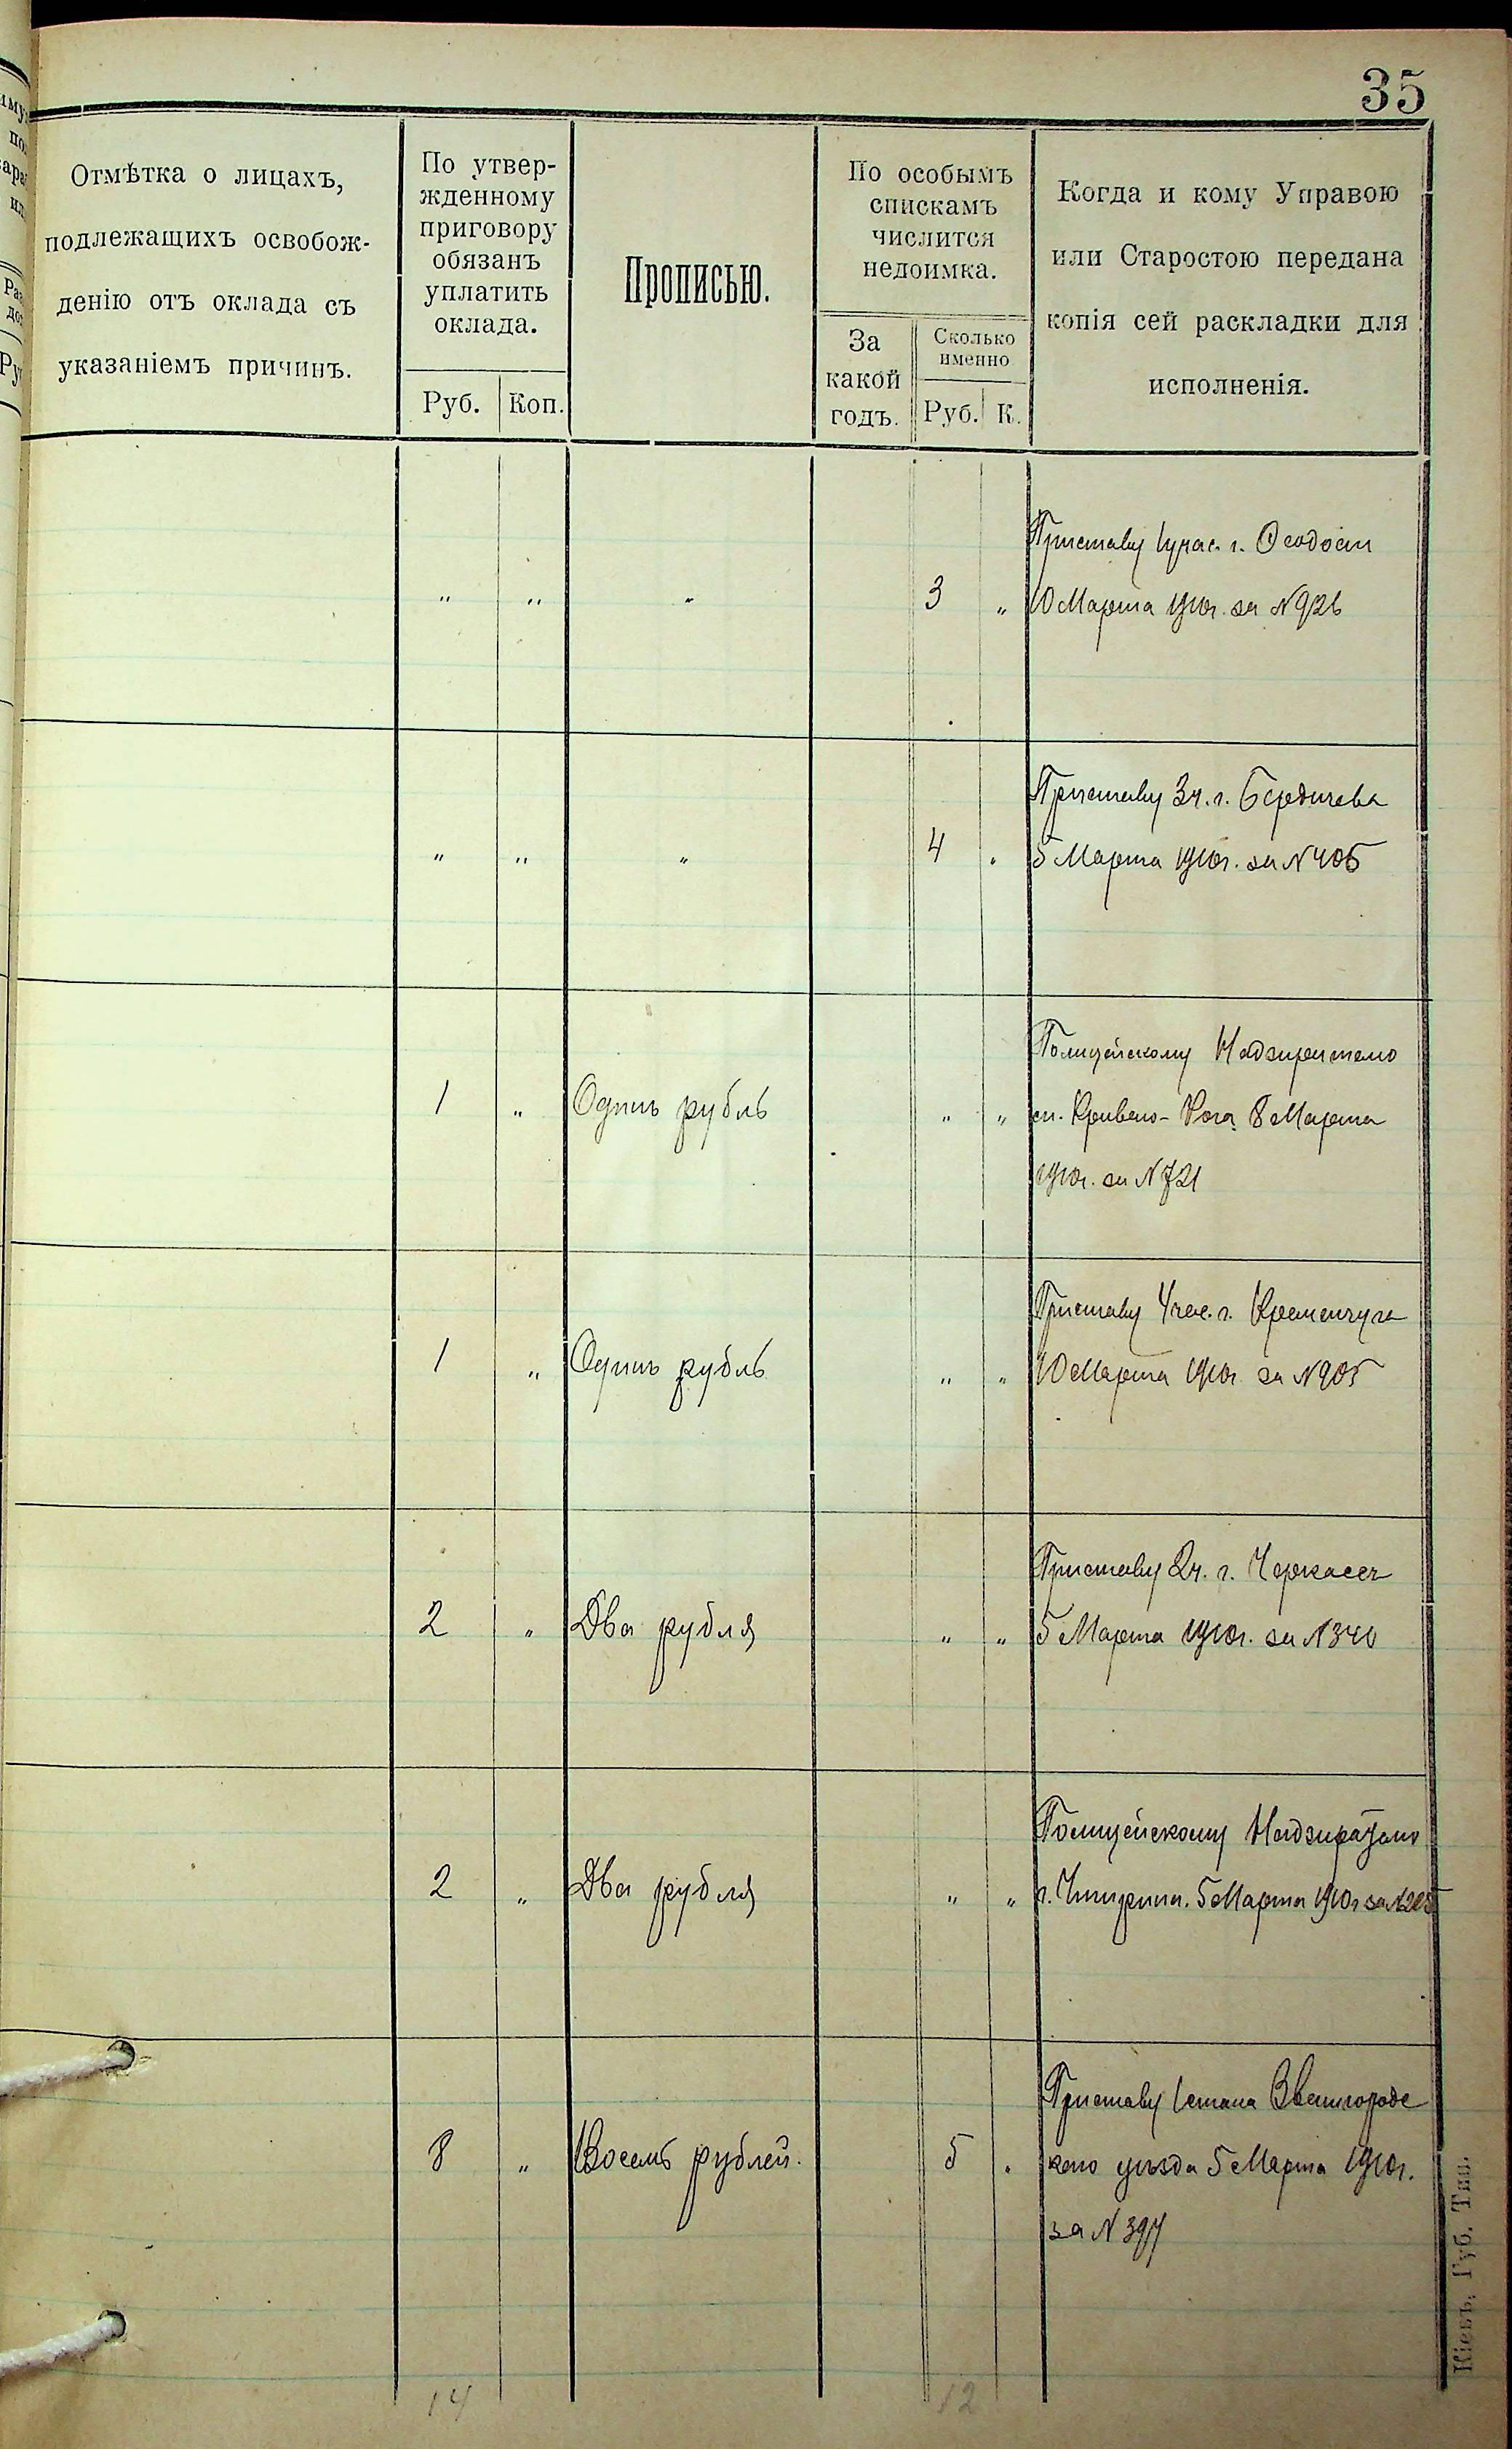 35
Отмѣтка о лицахъ,
подлежащихъ освобож-
денію отъ оклада съ
указаніемъ причинъ.
По утвер-
жденному
приговору
обязанъ
уплатить
оклада.
Руб. Коп.
Прописью.
По особымъ
спискамъ
числится
недоимка.
За
какой
годъ.
Сколько
именно
Руб. К.
Когда и кому Управою
или Старостою передана
копія сей раскладки для
исполненія.
Приставу 1 учас. г.
" " " 3 " 10 Марта 1910г. за N 926
Приставу 3 ч. г. Бердичева
" " " 4 " 5 Марта 1910г. за N 405
Полицейскому Надзирателю
1 " Одинъ рубль " " м. Кривого-Рога 8 Марта
1910г. за N 721
Приставу учас. г. Кременчуга
1 " Одинъ рубль " " 10 Марта 1910г за N 905
Приставу 2 ч. г. Черкассъ
2 " Два рубля " " 5 Марта 1910г. за N 340
Полицейскому Надзирателю
2 " Два рубля " " г. Чигирина. 5 Марта 1910г за
Приставу 1 стана Звенигородс
8 " Восемь рублей. 5 " каго уѣзда 5 Марта 1910г.
за N
14 12
Кіевъ, Губ. Тип.